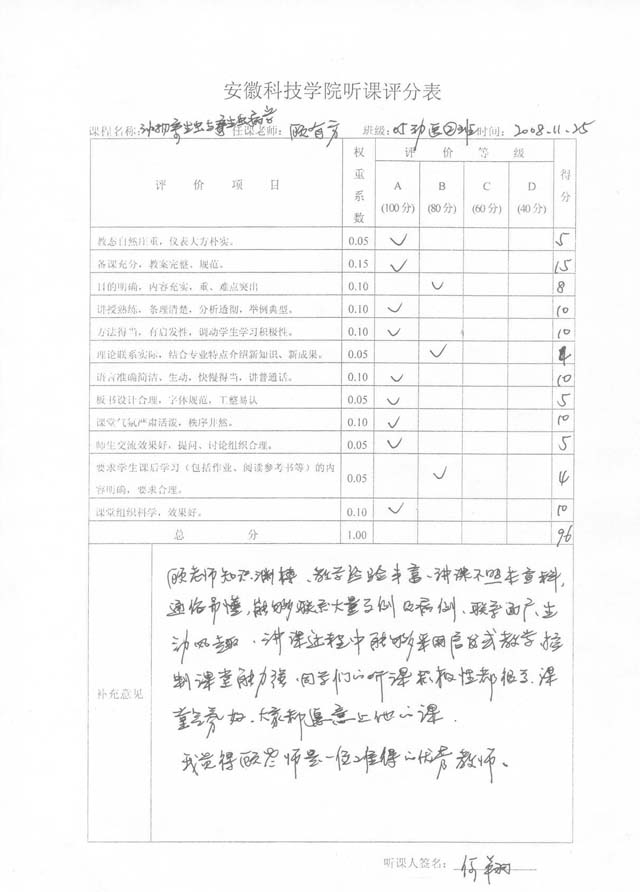 安徽科技学院听课评分表
课程名称: 动物寄生虫与寄生虫病学 任课老师: 顾有方 班级: 动医②班 时间: 2008.11.25
评 价 项 目 权重系数 评 价 等 级 得分
A (100分) B (80分) C (60分) D (40分)
教态自然庄重，仪表大方朴实。 0.05 ✓ 5
备课充分，教案完整、规范。 0.15 ✓ 15
目的明确，内容充实，重、难点突出 0.10 ✓ 8
讲授熟练，条理清楚，分析透彻，举例典型。 0.10 ✓ 10
方法得当，有启发性，调动学生学习积极性。 0.10 ✓ 10
理论联系实际，结合专业特点介绍新知识、新成果。 0.05 ✓ 4
语言准确简洁、生动，快慢得当，讲普通话。 0.10 ✓ 10
板书设计合理，字体规范，工整易认 0.05 ✓ 5
课堂气氛严肃活泼，秩序井然。 0.10 ✓ 10
师生交流效果好，提问、讨论组织合理。 0.05 ✓ 5
要求学生课后学习（包括作业、阅读参考书等）的内
容明确，要求合理。 0.05 ✓ 4
课堂组织科学，效果好。 0.10 ✓ 10
总 分 1.00 96
补充意见
顾老师知识渊博、教学经验丰富、讲课不照本宣科，
通俗易懂，能够联系大量事例及病例、联系生产、生
动风趣．讲课过程中能够采用启发式教学，控
制课堂能力强．同学们的听课积极性都很高．课
堂气氛好．大家都愿意上他的课．
我觉得顾老师是一位难得的优秀教师。
听课人签名: 何翔